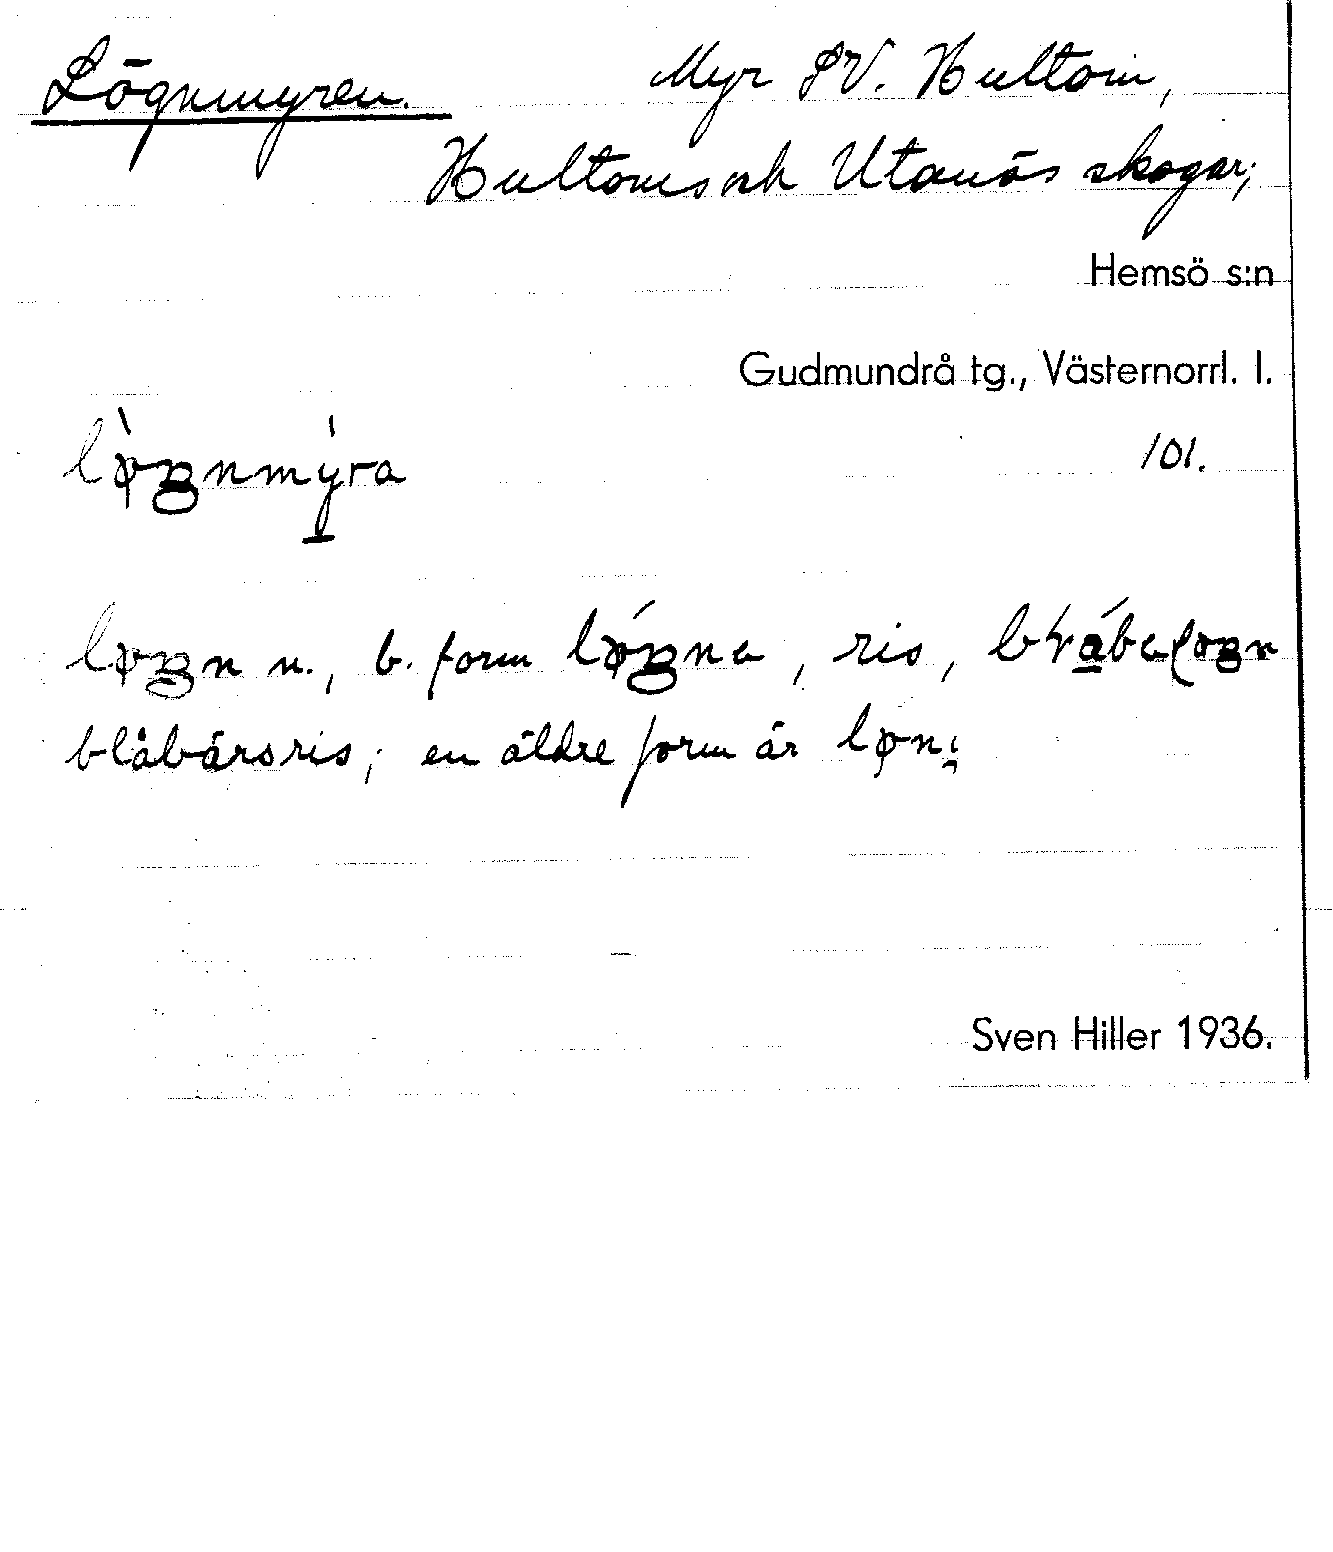 Lögnmyren. Myr SV. Hultom,
Hultoms och Utanös skogar;
Hemsö s:n
Gudmundrå tg., Västernorrl. l.
101.
n., b. form , ris,
blåbärsris; en äldre form är
Sven Hiller 1936.